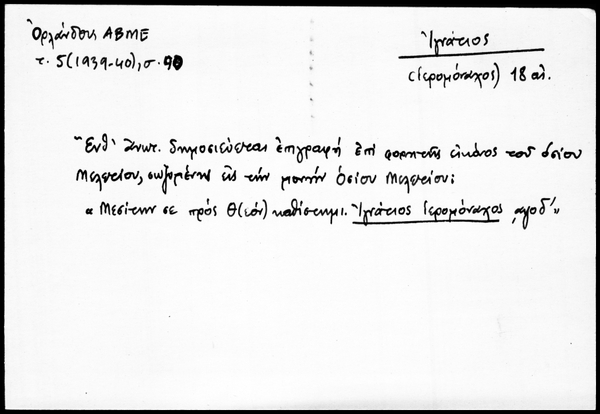 Ὀρλάνδος ΑΒΜΕ
τ. 5 (1939-40), σ. 90
Ἰγνάτιος
(ἱερομόναχος) 18 αι.
Ἔνθ' ἀνωτ. δημοσιεύεται ἐπιγραφή ἐπί φορητῆς εἰκόνος τοῦ ὁσίου
Μελετίου, σωζομένης εἰς τήν μονήν Ὁσίου Μελετίου:
« Μεσίτην σε πρός Θ(εόν) καθίστημι. Ἰγνάτιος ἱερομόναχος ͵αψοδ΄ »